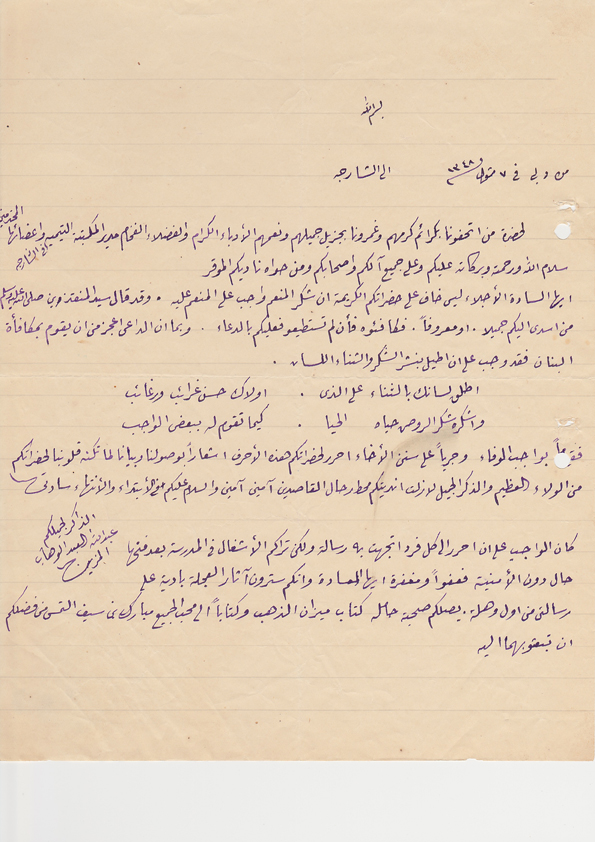 بسم الله
من دبي في ٧ شوال ١٣٤٨ الى الشارجه
لحضرة من اتحفونا بكرائم كرمهم وغمرونا بجزيل جميلهم ونعمهم الأدباء الكرام والفضلاء الفخام مدير المكتبة التيمية واعضائها المحترمين
في الشارجه
سلام الله ورحمة وبركاته عليكم وعلى جميع آلكم واصحابكم ومن حواه ناديكم الموقر
ايها السادة الأجلاء ليس خاف على حضراتكم الكريمة ان شكر المنعم واجب على المنعم عليه . وقد قال سيد صلى عليه وسلم
من اسدى اليكم جميلا . او معروفاً . فكافئوه فأن لم تستطيعو فعليكم بالدعاء . وبما ان الداعي اعجز من ان يقوم بمكافأة
البنان فقد وجب على ان اميل بنشر الشكر والثناء اللسان .
اطلق لسانك بالثناء على الذى . اولاك حسن غرائب ورغائب
واشكره شكر الروض حياه الحيا . كيما تقوم له ببعض الواجب
فقياماً بواجب الوفاء وجرياً على سنن الأخاء احرر لحضراتكم هذه الأحرف اشعاراً بوصولنا وبيانا لما تكنه قلوبنا لحضراتكم
من الولاء العظيم والذكر الجميل لا زالت انديتكم محط رحال القاصدين آمين آمين والسلام عليكم في الأبتداء والأنتهاء سادتي
الذاكر لجميلكم
عبدالله العبد الوهاب
كان الواجب على ان احرر الى كل فرد اتجهت به رسالة ولكن تراكم الأشغال في المدرسة بعد فتحها
حال دون الأمنية فعفواً ومغفرة ايها السادة وانكم سترون آثار العجلة بادية على
رسالتى من اول وهلة . يصلكم صحبة حامله كتاب ميزان الذهب وكتاباً الى محب الجميع مبارك بن سيف من فضلكم
ان تبعثو بهما اليه